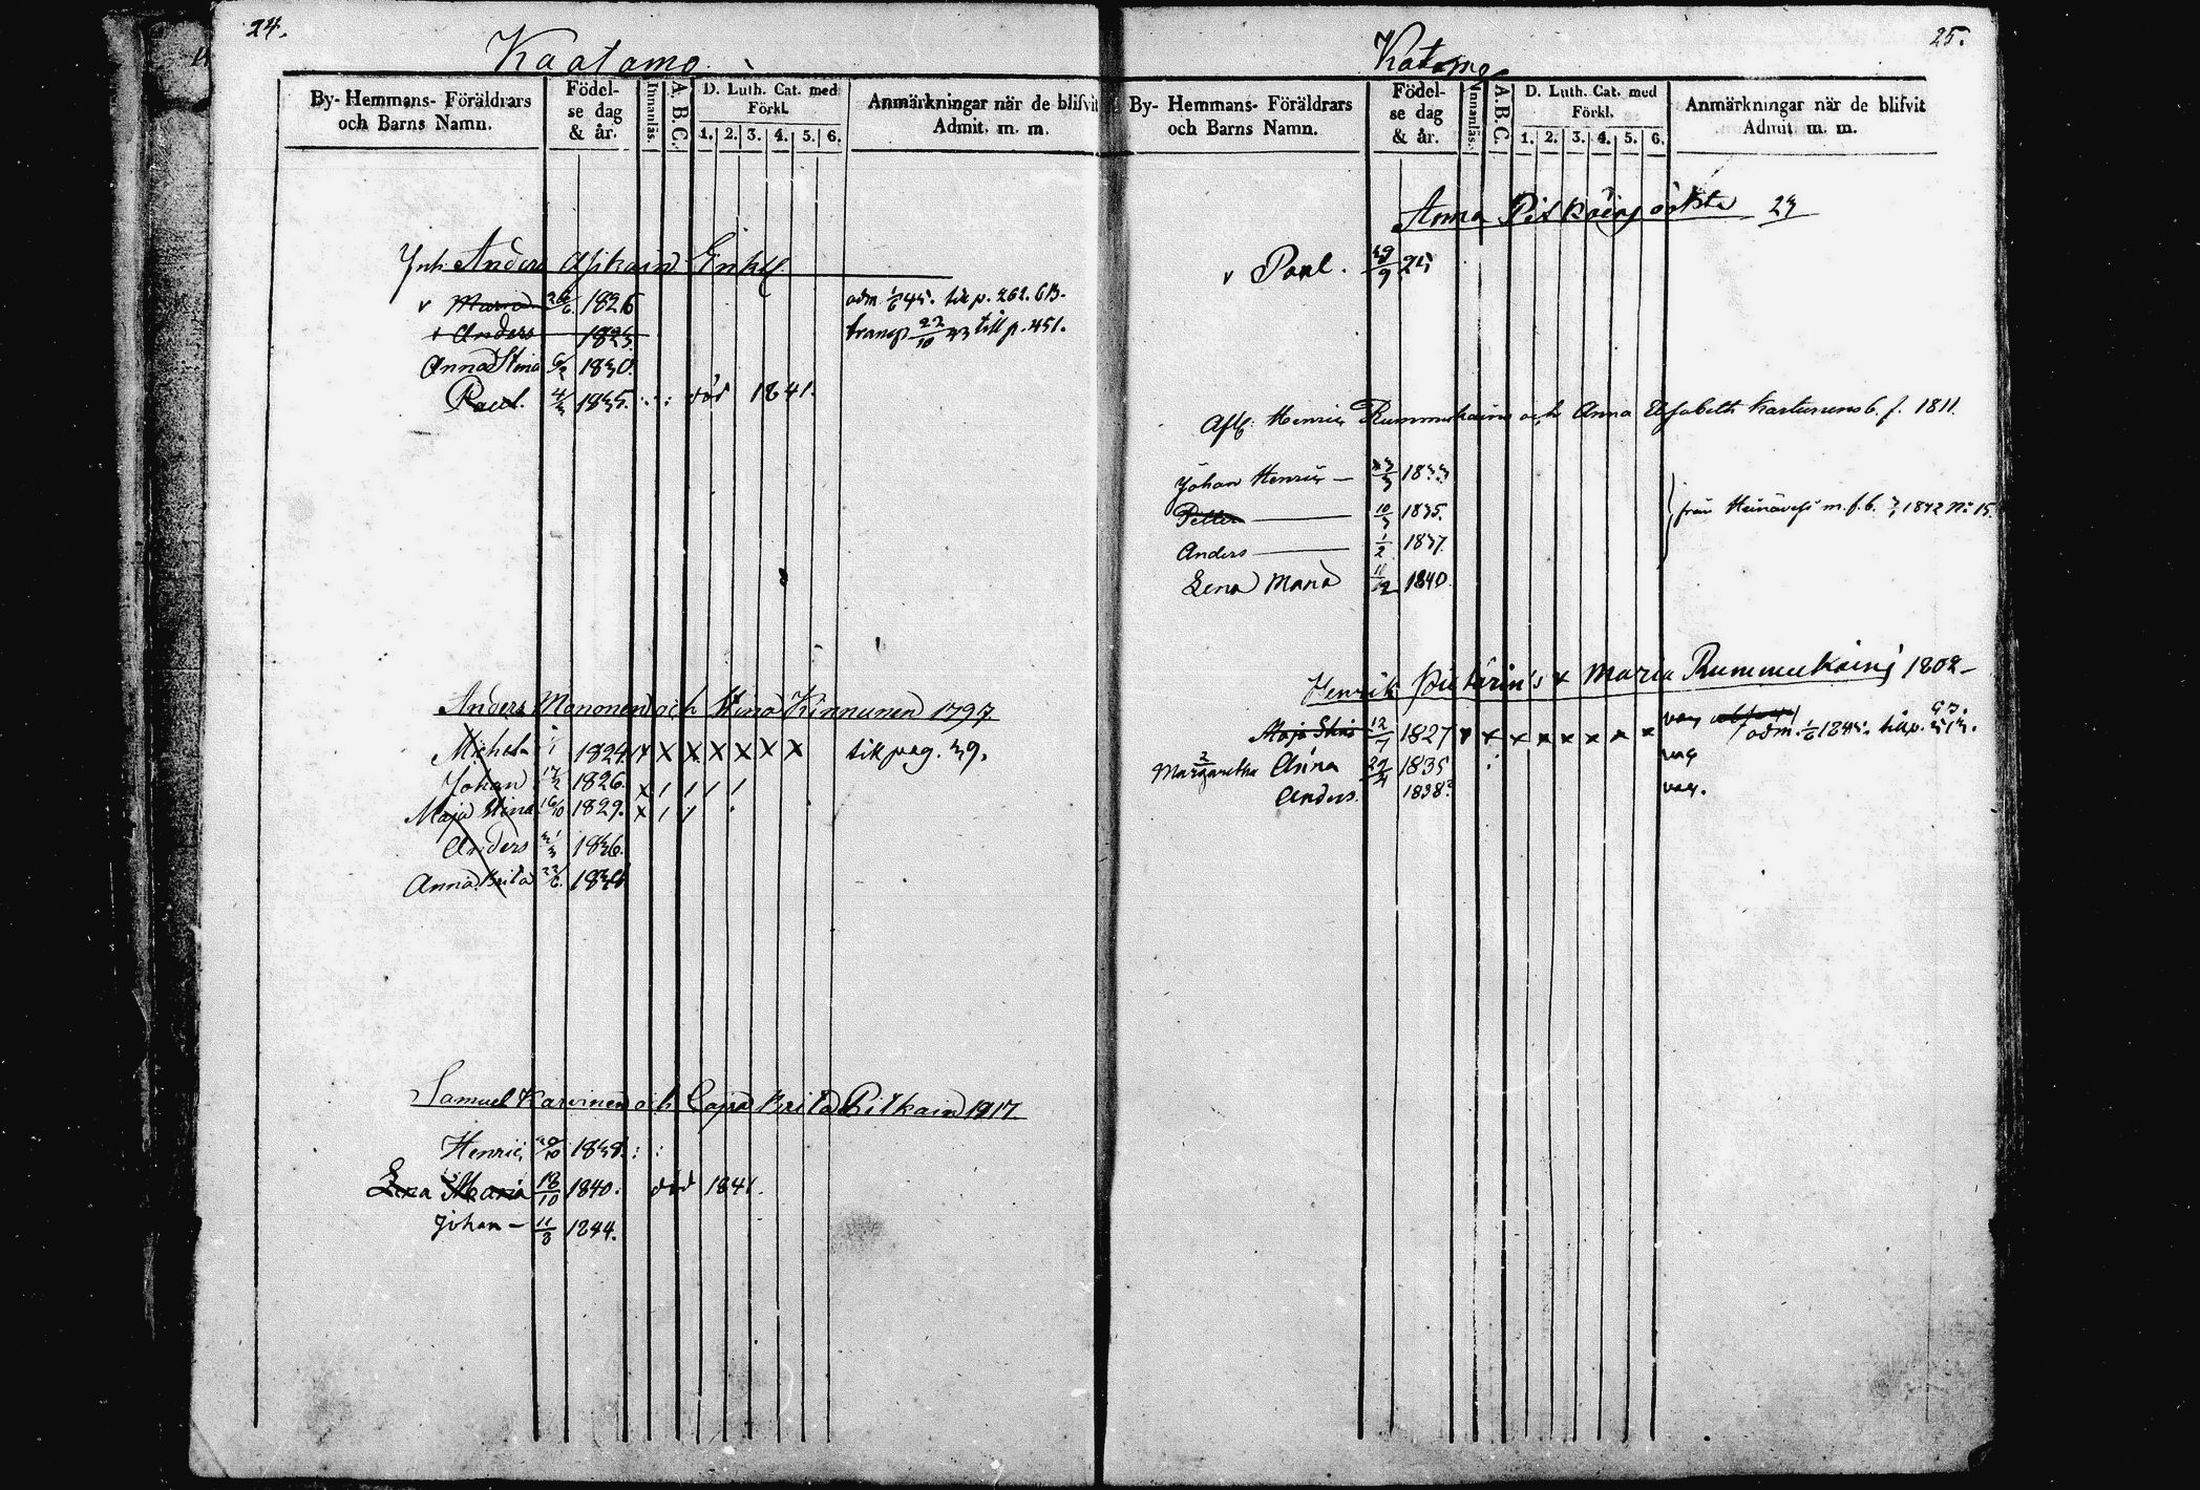 24.
Kaatamo
By- Hemmans- Föräldrars och Barns Namn.
Födelse dag & år.
Innanläs.
A. B. C.
D. Luth. Cat. med Förkl.
1. 2. 3. 4. 5. 6.
Anmärkningar när de blifvit Admit. m. m.
Inh. Anders Asikain Enkl.
v Maria 26/6 1826 adm 1/6 45. till p. 262. GB.
+ Anders 1823. transp 22/10 43 till p. 451.
Anna Stina 6/2 1830.
Paul. 4/3 1835. död 1841.
Anders Mononen och Stina Kinnunen 1797
Michel 1824 x x x x x x x till pag. 39.
Johan 1826. x / / / /
Maja Stina 16/10 1829. x / /
Anders 1836.
Anna Brita 22/6
Samuel Karvinen och Cajsa Brita Pitkain 1817.
Henric 1838.
Lena Maria 18/10 1840. död 1841.
Johan – 11/8 1844.
25.
Katamo
By- Hemmans- Föräldrars och Barns Namn.
Födelse dag & år.
Innanläs.
A. B. C.
D. Luth. Cat. med Förkl.
1. 2. 3. 4. 5. 6.
Anmärkningar när de blifvit Admit. m. m.
Anna 23
v Paul. 29/9 25
Afl. Henric Rummukains och Anna Elisabeth Karturens b. f. 1811.
Johan Henric – 1833
Petter 10/3 1835.
Anders 1/2 1837. från Heinävesi m. f. b. 1842 No 15.
Lena Maria 11/12 1840
Henrik & Maria Rummukain 1802–
Maja Stina 12/7 1827 x x x x x x x x adm. 1/6 1845.
Margaretha 2 Anna 29/4 1835
Anders. 1838?